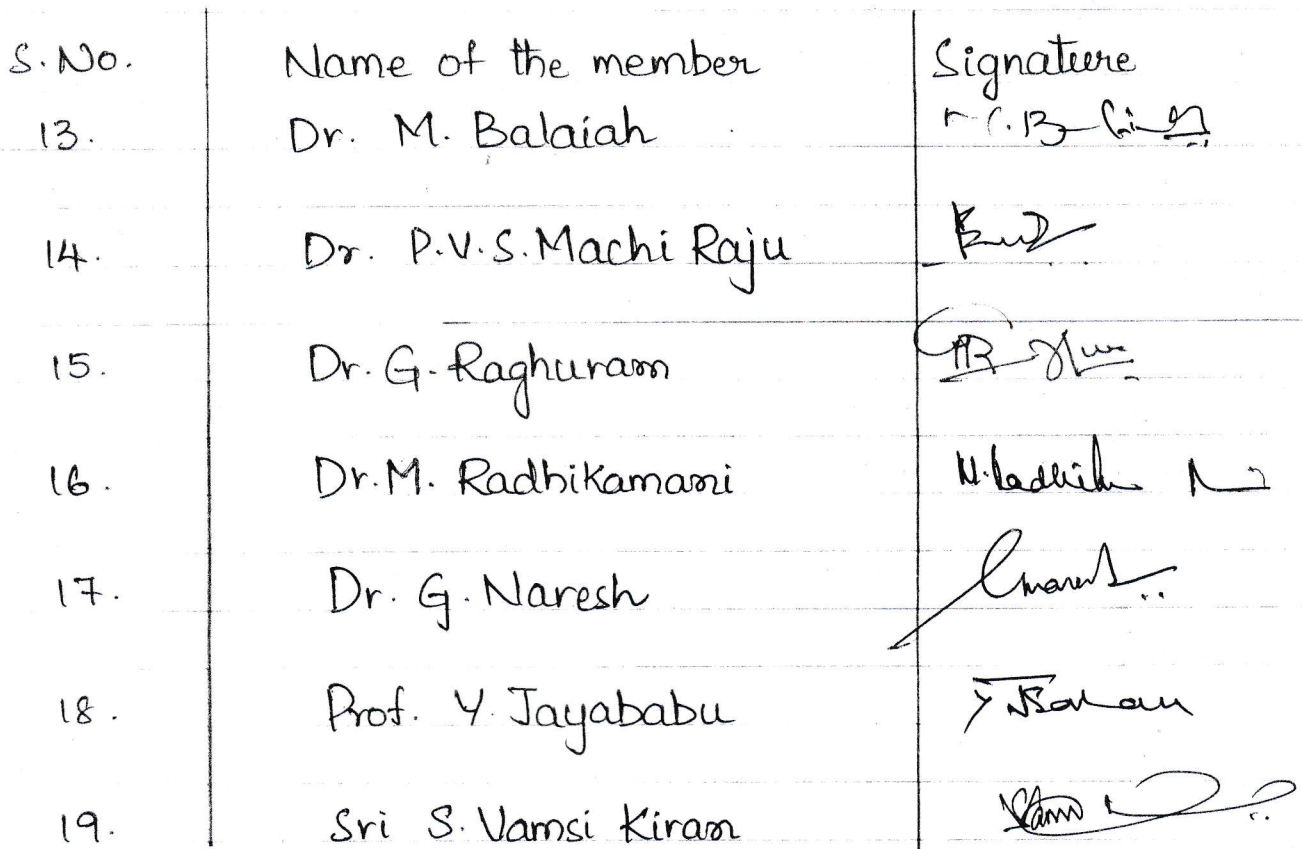 S.No. Name of the member Signature
13. Dr. M. Balaiah
14. Dr. P.V.S. Machi Raju
15. Dr. G. Raghuram
16. Dr. M. Radhikamani
17. Dr. G. Naresh
18. Prof. Y. Jayababu
19. Sri S. Vamsi Kiran